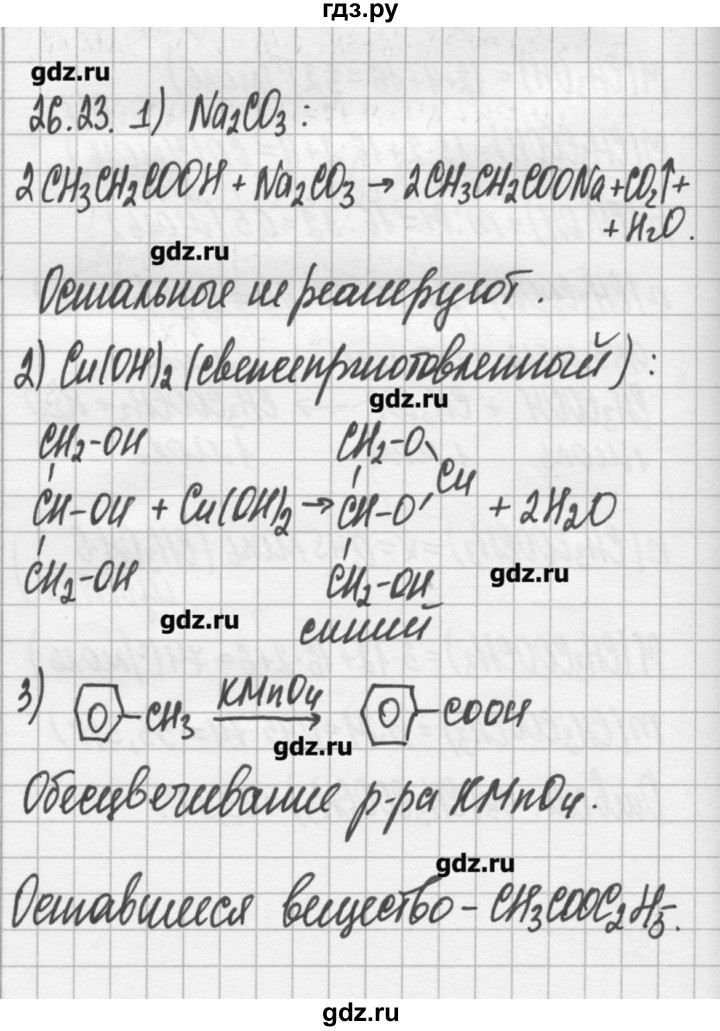 гдз.ру
gdz.ru
26.23. 1) Na₂CO₃:
2CH₃CH₂COOH + Na₂CO₃ → 2CH₃CH₂COONa + CO₂↑ +
+ H₂O.
gdz.ru
Остальные не реагируют.
2) Cu(OH)₂ (свежеприготовленный):
gdz.ru
CH₂-OH CH₂-O
Cu
CH-OH + Cu(OH)₂ → CH-O + 2H₂O
CH₂-OH CH₂-OH
gdz.ru
gdz.ru
синий
3) -CH₃ KMnO₄ → -COOH
gdz.ru
Обесцвечивание р-ра KMnO₄.
gdz.ru
Оставшееся вещество - CH₃COOC₂H₅.
gdz.ru